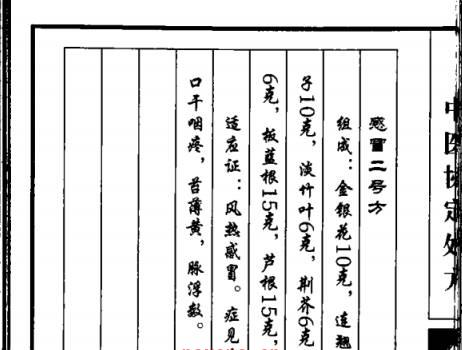 感冒二号方
组成：金银花10克，连翘
子10克，淡竹叶6克，荆芥6克
6克，板蓝根15克，芦根15克，
适应证：风热感冒。症见
口干咽疼，苔薄黄，脉浮数。
中医协定处方